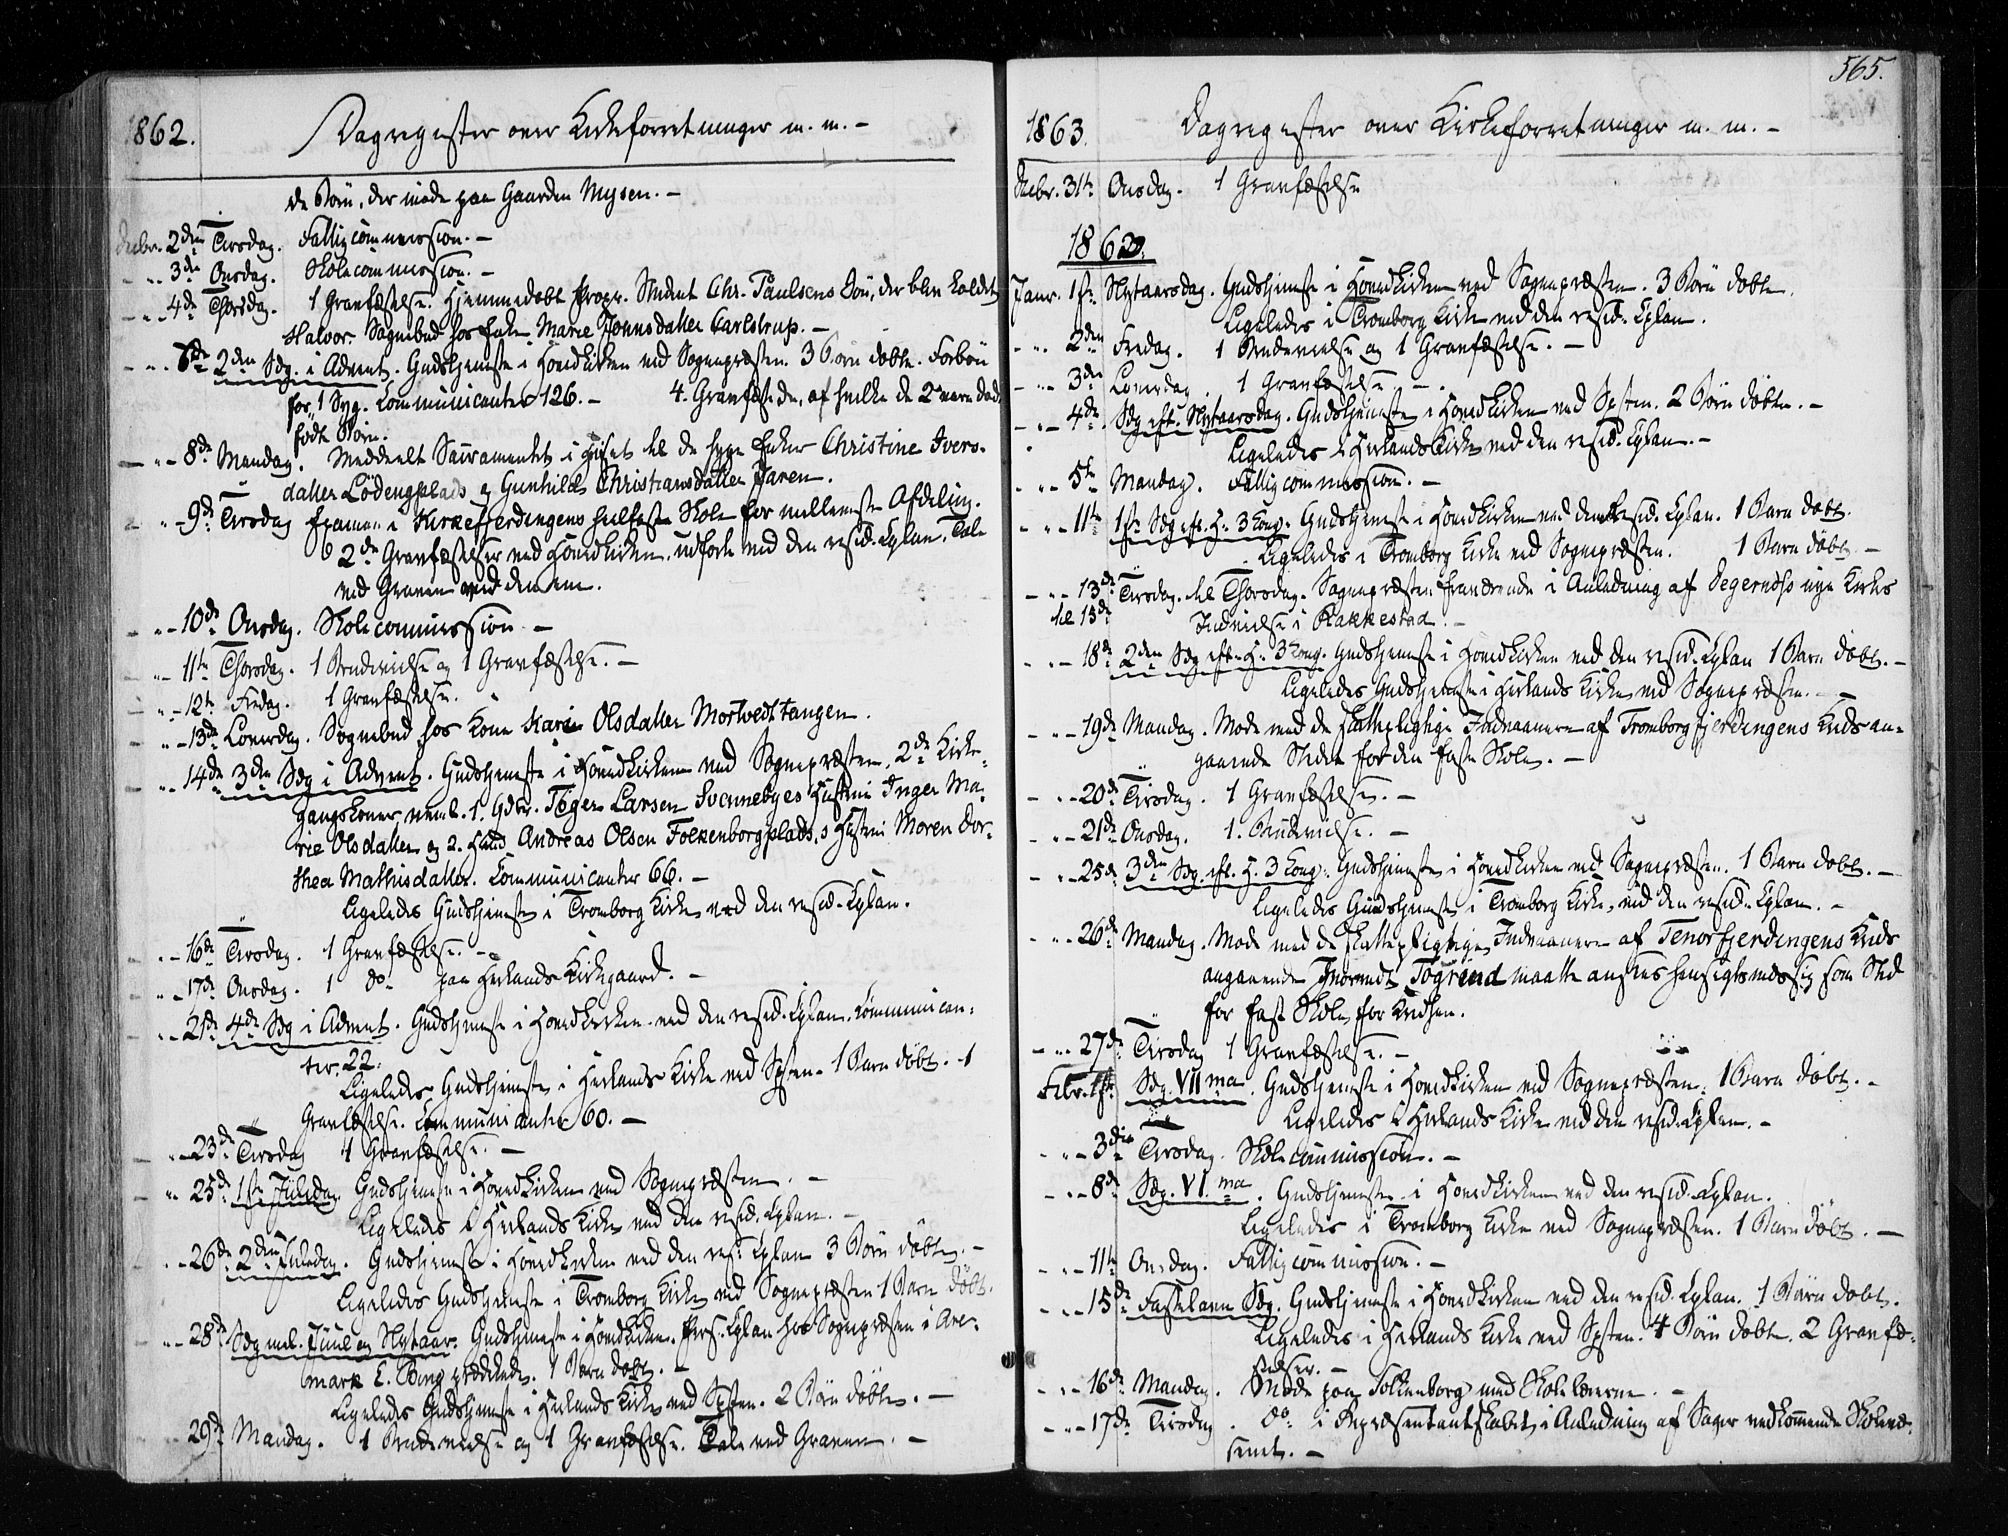 1862.
Dagregister over Kirkeforretninger m. m. -
de Børn, der møde paa Gaarden Mysen. -
Decbr. 2den Tirsdag. Fattigcommission. -
- " - 3de Onsdag. Skolecommission. -
- " - 4de Thorsdag. 1 Gravfæstelse. Hjemmedøbt Propr. Student Chr. Paulsens Søn, der blev kaldet
Halvor. Sognebud hos Enken Marie Tønnsdatter Carlstrup. -
- " - 7de 2den Sdg. i Advent. Gudstjeneste i Hovedkirken ved Sognepræsten. 3 Børn døbte. Forbøn
for 1 Syg. Communicanter 126. - 4 Gravfæstede, af hvilke de 2 vare død-
fødte Børn.
- " - 8de Mandag. Meddeelt Sacramentet i Huset til de syge Enker Christine Ivers-
datter Lödengplads og Gunhild Christiansdatter Jaren.
- " - 9de Tirsdag Examen i Kirkefjerdingens helfaste Skole for mellemste Afdeling.
2de Gravfæstelser ved Hovedkirken, udførte ved den resid. Cplan. Tale
ved Graven ved denne.
- " - 10de Onsdag. Skolecommission. -
- " - 11te Thorsdag. 1 Brudevielse og 1 Gravfæstelse. -
- " - 12te Fredag. 1 Gravfæstelse.
- " - 13de Løverdag. Sognebud hos Kone Karen Olsdatter Mortvedttangen.
- " - 14de 3die Sdg i Advent. Gudstjeneste i Hovedkirken ved Sognepræsten. 2de Kirke-
gangskoner, neml. 1. Gdbr. Töger Larsen Svennebyes Hustru Inger Ma-
rie Olsdatter og 2. Husm. Andreas Olsen Folkenborgplads, s Hustru Maren Dor-
thea Mathisdatter. Communicanter 66. -
Ligeledes Gudstjeneste i Trømborg Kirke ved den resid. Cplan.
- " - 16de Tirsdag. 1 Gravfæstelse. -
- " - 17de Onsdag. 1 do paa Herlands Kirkegaard. -
- " - 21de 4de Sdg i Advent. Gudstjeneste i Hovedkirken ved den resid. Cplan. Communican-
ter 22.
Ligeledes Gudstjeneste i Herlands Kirke ved Spsten. 1 Barn døbt. 1
Gravfæstelse. Communicanter 60. -
- " - 23de Tirsdag 1 Gravfæstelse. -
- " - 25de 1ste Juledag. Gudstjeneste i Hovedkirken ved Sognepræsten. -
Ligeledes i Herlands Kirke ved den resid. Cplan. -
- " - 26de 2den Juledag. Gudstjeneste i Hovedkirken ved den res. Cplan 3 Børn døbte. -
Ligeledes Gudstjeneste i Trømborg Kirke ved Sognepræsten 1 Barn døbt.
- " - 28de Sdg mel. Juul og Nytaar. Gudstjeneste i Hovedkirken. Pers. Cplan hos Sognepræsten i Are-
mark E. Bing prædikede. 1 Barn døbt. -
Ligeledes Gudstjeneste i Herlands Kirke ved Spsten. 2 Børn døbte. -
- " - 29de Mandag. 1 Brudevielse og 1 Gravfæstelse. Tale ved Graven. -
565.
1863.
Dagregister over Kirkeforretninger m. m. -
Decbr. 31te Onsdag. 1 Gravfæstelse
1863.
Janr. 1ste Nytaarsdag. Gudstjeneste i Hovedkirken ved Sognepræsten. 3 Børn døbte.
Ligeledes i Trømborg Kirke ved den resid. Cplan.
- " - 2den Fredag. 1 Brudevielse og 1 Gravfæstelse. -
- " - 3die Løverdag. 1 Gravfæstelse. -
- " - 4de Sdg eft. Nytaarsdag. Gudstjeneste i Hovedkirken ved Spsten. 2 Børn døbte. -
Ligeledes i Herlands Kirke ved den resid. Cplan. -
- " - 5te Mandag. Fattigcommission. -
- " - 11te 1ste Sdg eft. H. 3 Kong. Gudstjeneste i Hovedkirken ved den resid. Cplan. 1 Barn døbt.
Ligeledes i Trømborg Kirke ved Sognepræsten. 1 Barn døbt. -
- " - 13de Tirsdag til Thorsdag. Sognepræsten fraværende i Anledning af Degernæs nye Kirkes
til 15de Indvielse i Rakkestad. -
- " - 18de 2den Sdg eft. H. 3 Kong. Gudstjeneste i Hovedkirken ved den resid. Cplan 1 Barn døbt. -
Ligeledes Gudstjeneste i Herlands Kirke ved Sognepræsten. -
- " - 19de Mandag. Møde med de skattepligtige Indvaanere af Tromborgfjerdingens Kreds an-
gaaende Stedet for den faste Skole. -
- " - 20de Tirsdag. 1 Gravfæstelse. -
- " - 21de Onsdag. 1. Brudevielse. -
- " - 25de 3die Sdg. eft. H. 3 Kong. Gudstjeneste i Hovedkirken ved Sognepræsten. 1 Barn døbt. -
Ligeledes Gudstjeneste i Trømborg Kirke ved den resid. Cplan. -
- " - 26de Mandag. Møde med de skattepligtige Indvaanere af Tenorfjerdingens Kreds
angaaende hvorvidt Togrend maatte ansees hensigtsmæssig som Sted
for fast Skole for Kredsen.
- " - 27de Tirsdag 1 Gravfæstelse. -
Febr. 1ste Sdg. VIIma. Gudstjeneste i Hovedkirken ved Sognepræsten. 1 Barn døbt. -
Ligeledes i Herlands Kirke ved den resid. Cplan. -
- " - 3die Tirsdag. Skolecommission. -
- " - 8de Sdg. VI.ma. Gudstjeneste i Hovedkirken ved den resid. Cplan.
Ligeledes i Trømborg Kirke ved Sognepræsten. 1 Barn døbt. -
- " - 11te Onsdag. Fattigcommission. -
- " - 15de Fastelavns Sdg. Gudstjeneste i Hovedkirken ved den resid. Cplan. 1 Barn døbt.
Ligeledes i Herlands Kirke ved Spsten. 4 Børn døbte. 2 Gravfæ-
stelser. -
- " - 16de Mandag. Møde paa Folkenborg med Skolelærerne. -
- " - 17de Tirsdag. do i Repræsentantskabet i Anledning af Sager vedkommende Skolevæ-
senet. -